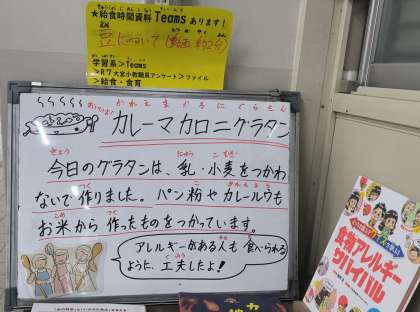 ★給食時間資料 Teams あります!
豆について(動画 約2分)
学習系>Teams
>R7大宮小教職員アンケート>ファイル
>給食・食育
カレーマカロニグラタン
今日のグラタンは、乳・小麦をつかわ
ないで作りました。パン粉やカレールウも
お米から作ったものをつかっています。
アレルギーがある人も食べられる
ように、工夫したよ!
食物アレルギー
サバイバル